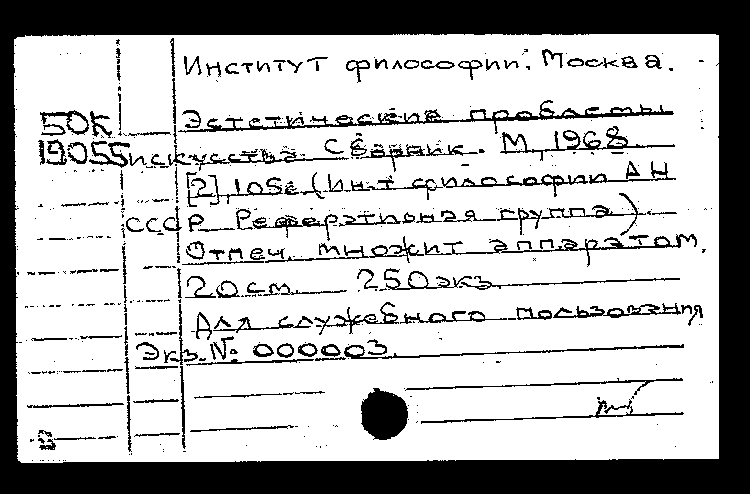 Институт философии. Москва.
50К Эстетические проблемы
19055 искусства. Сборник. М., 1968.
[2], 105с (Ин-т философии АН
СССР Реферативная группа).
Отпеч. множит аппаратом.
20 см. 250 экз.
Для служебного пользования
Экз. № 000003.